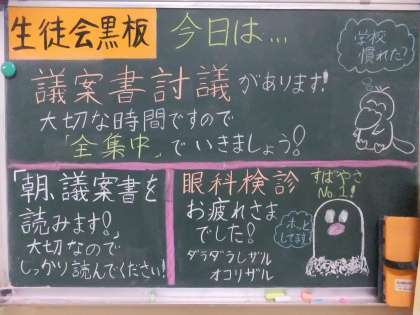 生徒会黒板
今日は...
学校
慣れた?
議案書討議があります!
大切な時間ですので
「全集中」でいきましょう!
「朝、議案書を
読みます!」
大切なので
しっかり読んでください!
眼科検診
お疲れさま
でした!
ダラダラしザル
オコリザル
すばやさ
No.1!
ホッと
してます